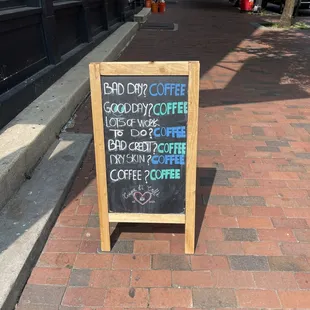 BAD DAY? COFFEE
GOOD DAY? COFFEE
LOTS OF WORK
TO DO? COFFEE
BAD CREDIT? COFFEE
DRY SKIN? COFFEE
COFFEE? COFFEE